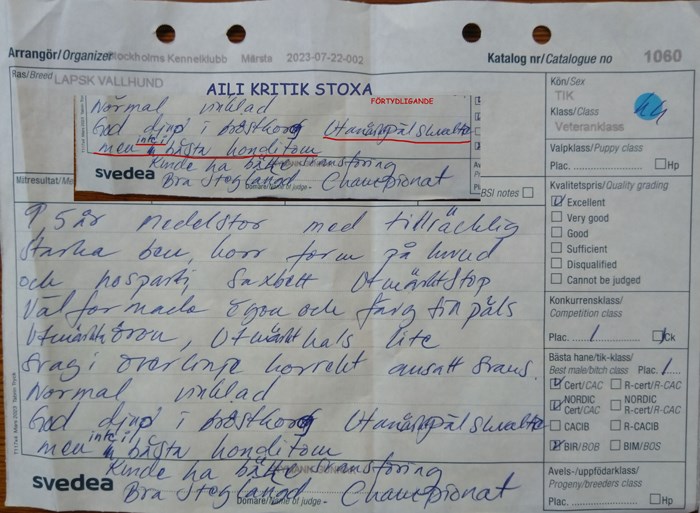 Arrangör/Organizer Stockholms Kennelklubb Märsta 2023-07-22-002
Katalog nr/Catalogue no 1060
Ras/Breed LAPSK VALLHUND
AILI KRITIK STOXA
FÖRTYDLIGANDE
Normal vinklad
God djup i bröstkorg Utmärkt päls
men inte i bästa kondition
Kunde ha bättre
svedea Bra Steglängd Championat
Domare/Name of judge
Kön/Sex
TIK
Klass/Class
Veteranklass
Valpklass/Puppy class
Plac. Hp
Mätresultat/Me
BSI notes
Kvalitetspris/Quality grading
Excellent
Very good
Good
Sufficient
Disqualified
Cannot be judged
9 5 år medelstor med tillräcklig
starka ben, korr form på huvud
och nosparti Saxbett Utmärkt Stop
Välformade ögon och färg fin päls
Utmärkt öron, Utmärkt hals lite
svag i överlinje korrekt ansatt svans.
Normal vinklad
God djup i bröstkorg Utmärkt päls
men inte i bästa kondition
Kunde ha bättre
svedea Bra Steglängd Championat
Domare/Name of judge
Konkurrensklass/
Competition class
Plac. 1 Ck
Bästa hane/tik-klass/
Best male/bitch class Plac. 1
Cert/CAC R-cert/R-CAC
NORDIC Cert/CAC NORDIC R-Cert/R-CAC
CACIB R-CACIB
BIR/BOB BIM/BOS
Avels-/uppfödarklass/
Progeny/breeders class
Plac. Hp